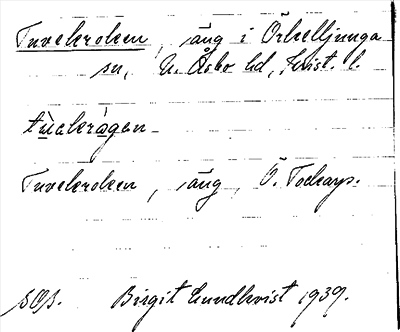 Tuvekroken, äng i Örkelljunga
sn, N. Åsbo hd, Krist. l.
tùakrågen
Tuvekroken, äng, Ö. Tockarp.
SOS. Birgit Lundkvist 1939.